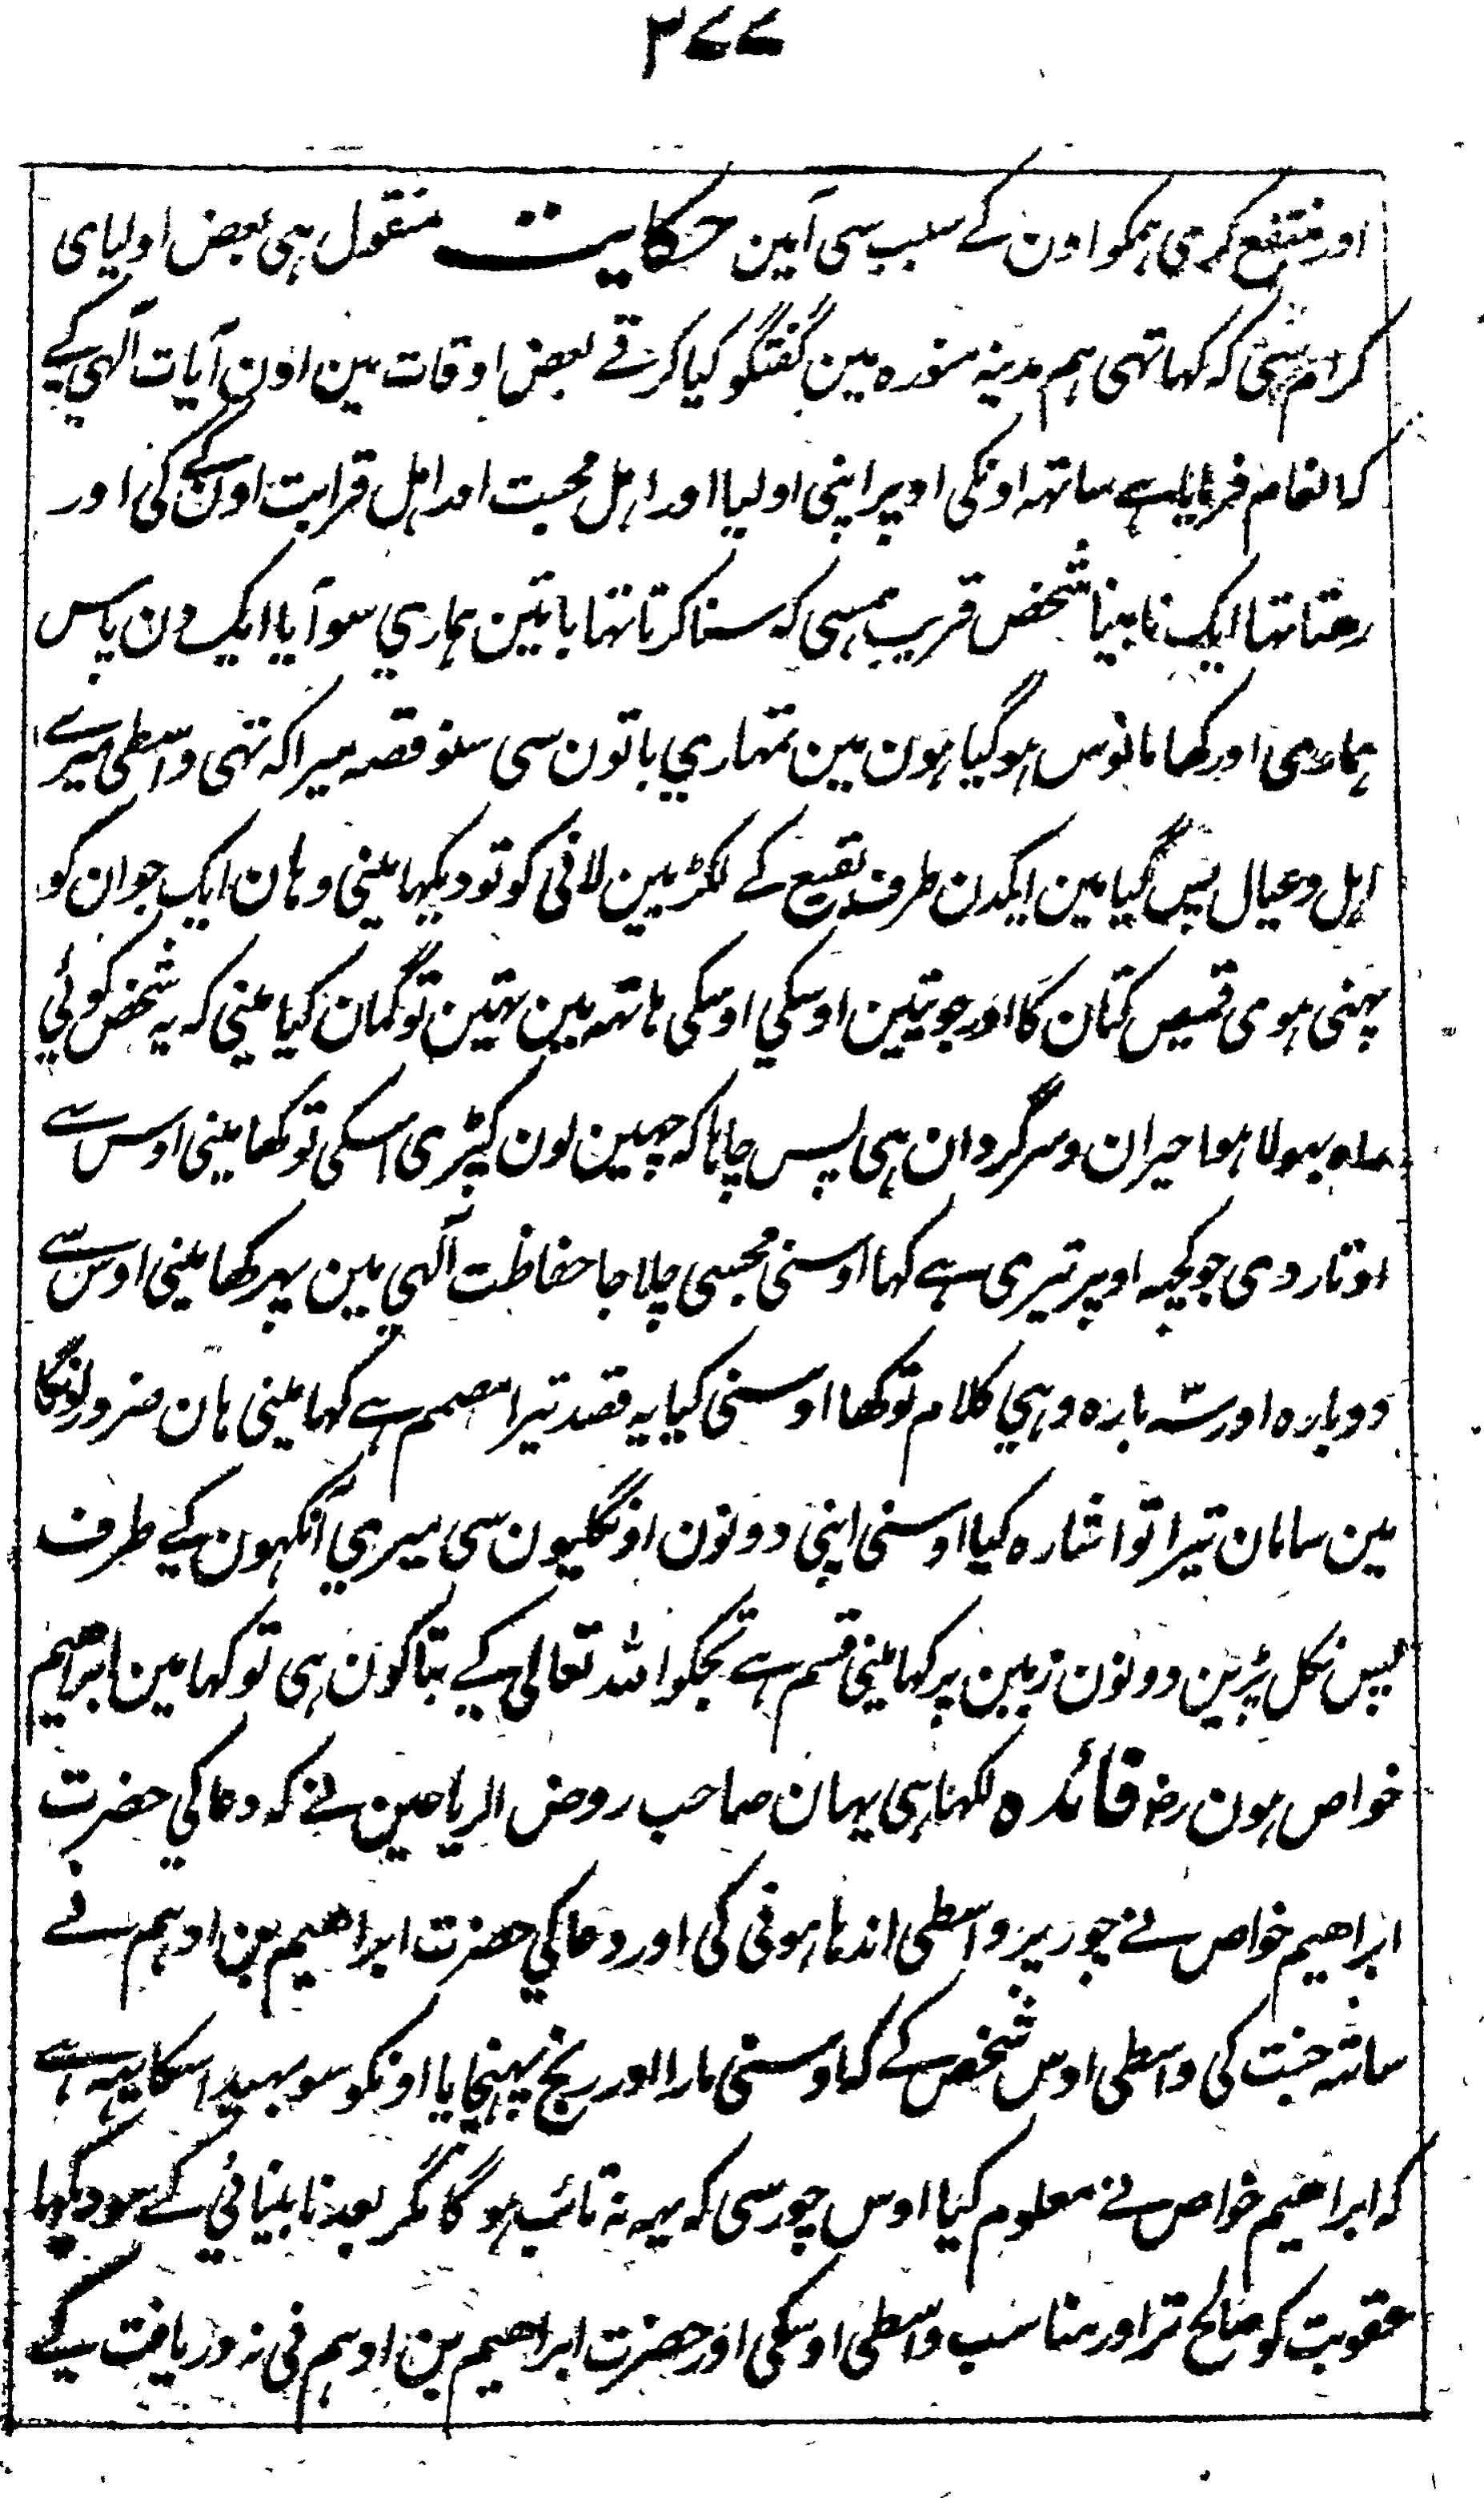 ۳۷۷
اور منتفع کری ہمکو اون کے سبب سی آمین حکایت منقول ہی بعض اولیای
کرام سی کہ کہا تہی ہم مدینہ منورہ مین گفتگو کیا کرتے بعض اوقات مین اون آیات آلہی کے
کہ انعام فرمایا ہے ساتہہ اونکی اوپر اپنی اولیا اور اہل محبت اور اہل قرابت اون کے کی اور
رہتا تہا ایک نابینا شخص قریب ہمسی کہ سنا کرتا تہا باتین ہماری سو آیا ایک دن پاس
ہماری اور کہا مانوس ہو گیا ہون مین تمہاری باتون سی سنو قصہ میرا کہ تہی واسطی میرے
اہل و عیال پس گیا مین ایکدن طرف بقیع کے لکڑمین لانی کو تو دیکہا مینی وہان ایک جوان کو
پہنی ہوی قمیص کتان کا اور جوتین اوسکی اوسکی ہاتہہ مین تہین تو گمان کیا مینی کہ یہ شخص کوئی
بہولا ہوا حیران و سرگردان ہی پس چاہا کہ چہین لون کپڑی اسکی تو کہا مینی اوس سے
اوتار دی جو کچہہ اوپر تیری ہے کہا اوسنی مجہسی چلا جا حفاظت آلہی مین پہر کہا مینی اوس سے
دوبارہ اور سہ بارہ وہی کلام تو کہا اوسنی کیا یہ قصد تیرا مصمم ہے کہا مینی ہان ضرور لونگا
مین سامان تیرا تو اشارہ کیا اوسنی اپنی دونون اونگلیون سی میری آنکہون کے طرف
پس نکل پڑین دونون زمین پر کہا مینی قسم ہے تجکو اللہ تعالی کے بتا کون ہی تو کہا مین ابراہیم
خواص ہون رض فائدہ لکہا ہی یہان صاحب روض الریاحین نے کہ دعا کی حضرت
ابراہیم خواص نے چور پر واسطی اندہا ہونی کی اور دعا کی حضرت ابراہیم بن ادہم نے
ساتہہ جنت کی واسطی اوس شخص کے کہ اوسنی مارا اور رنج پہنچایا اونکو سو بہید اسکا یہہ ہے
کہ ابراہیم خواص نے معلوم کیا اوس چور سی کہ یہہ نہ تائب ہوگا مگر بعد نابینائی کے سو دیکہا
عقوبت کو صالح تر اور مناسب واسطی اوسکی اور حضرت ابراہیم بن ادہم نی نہ دریافت کے